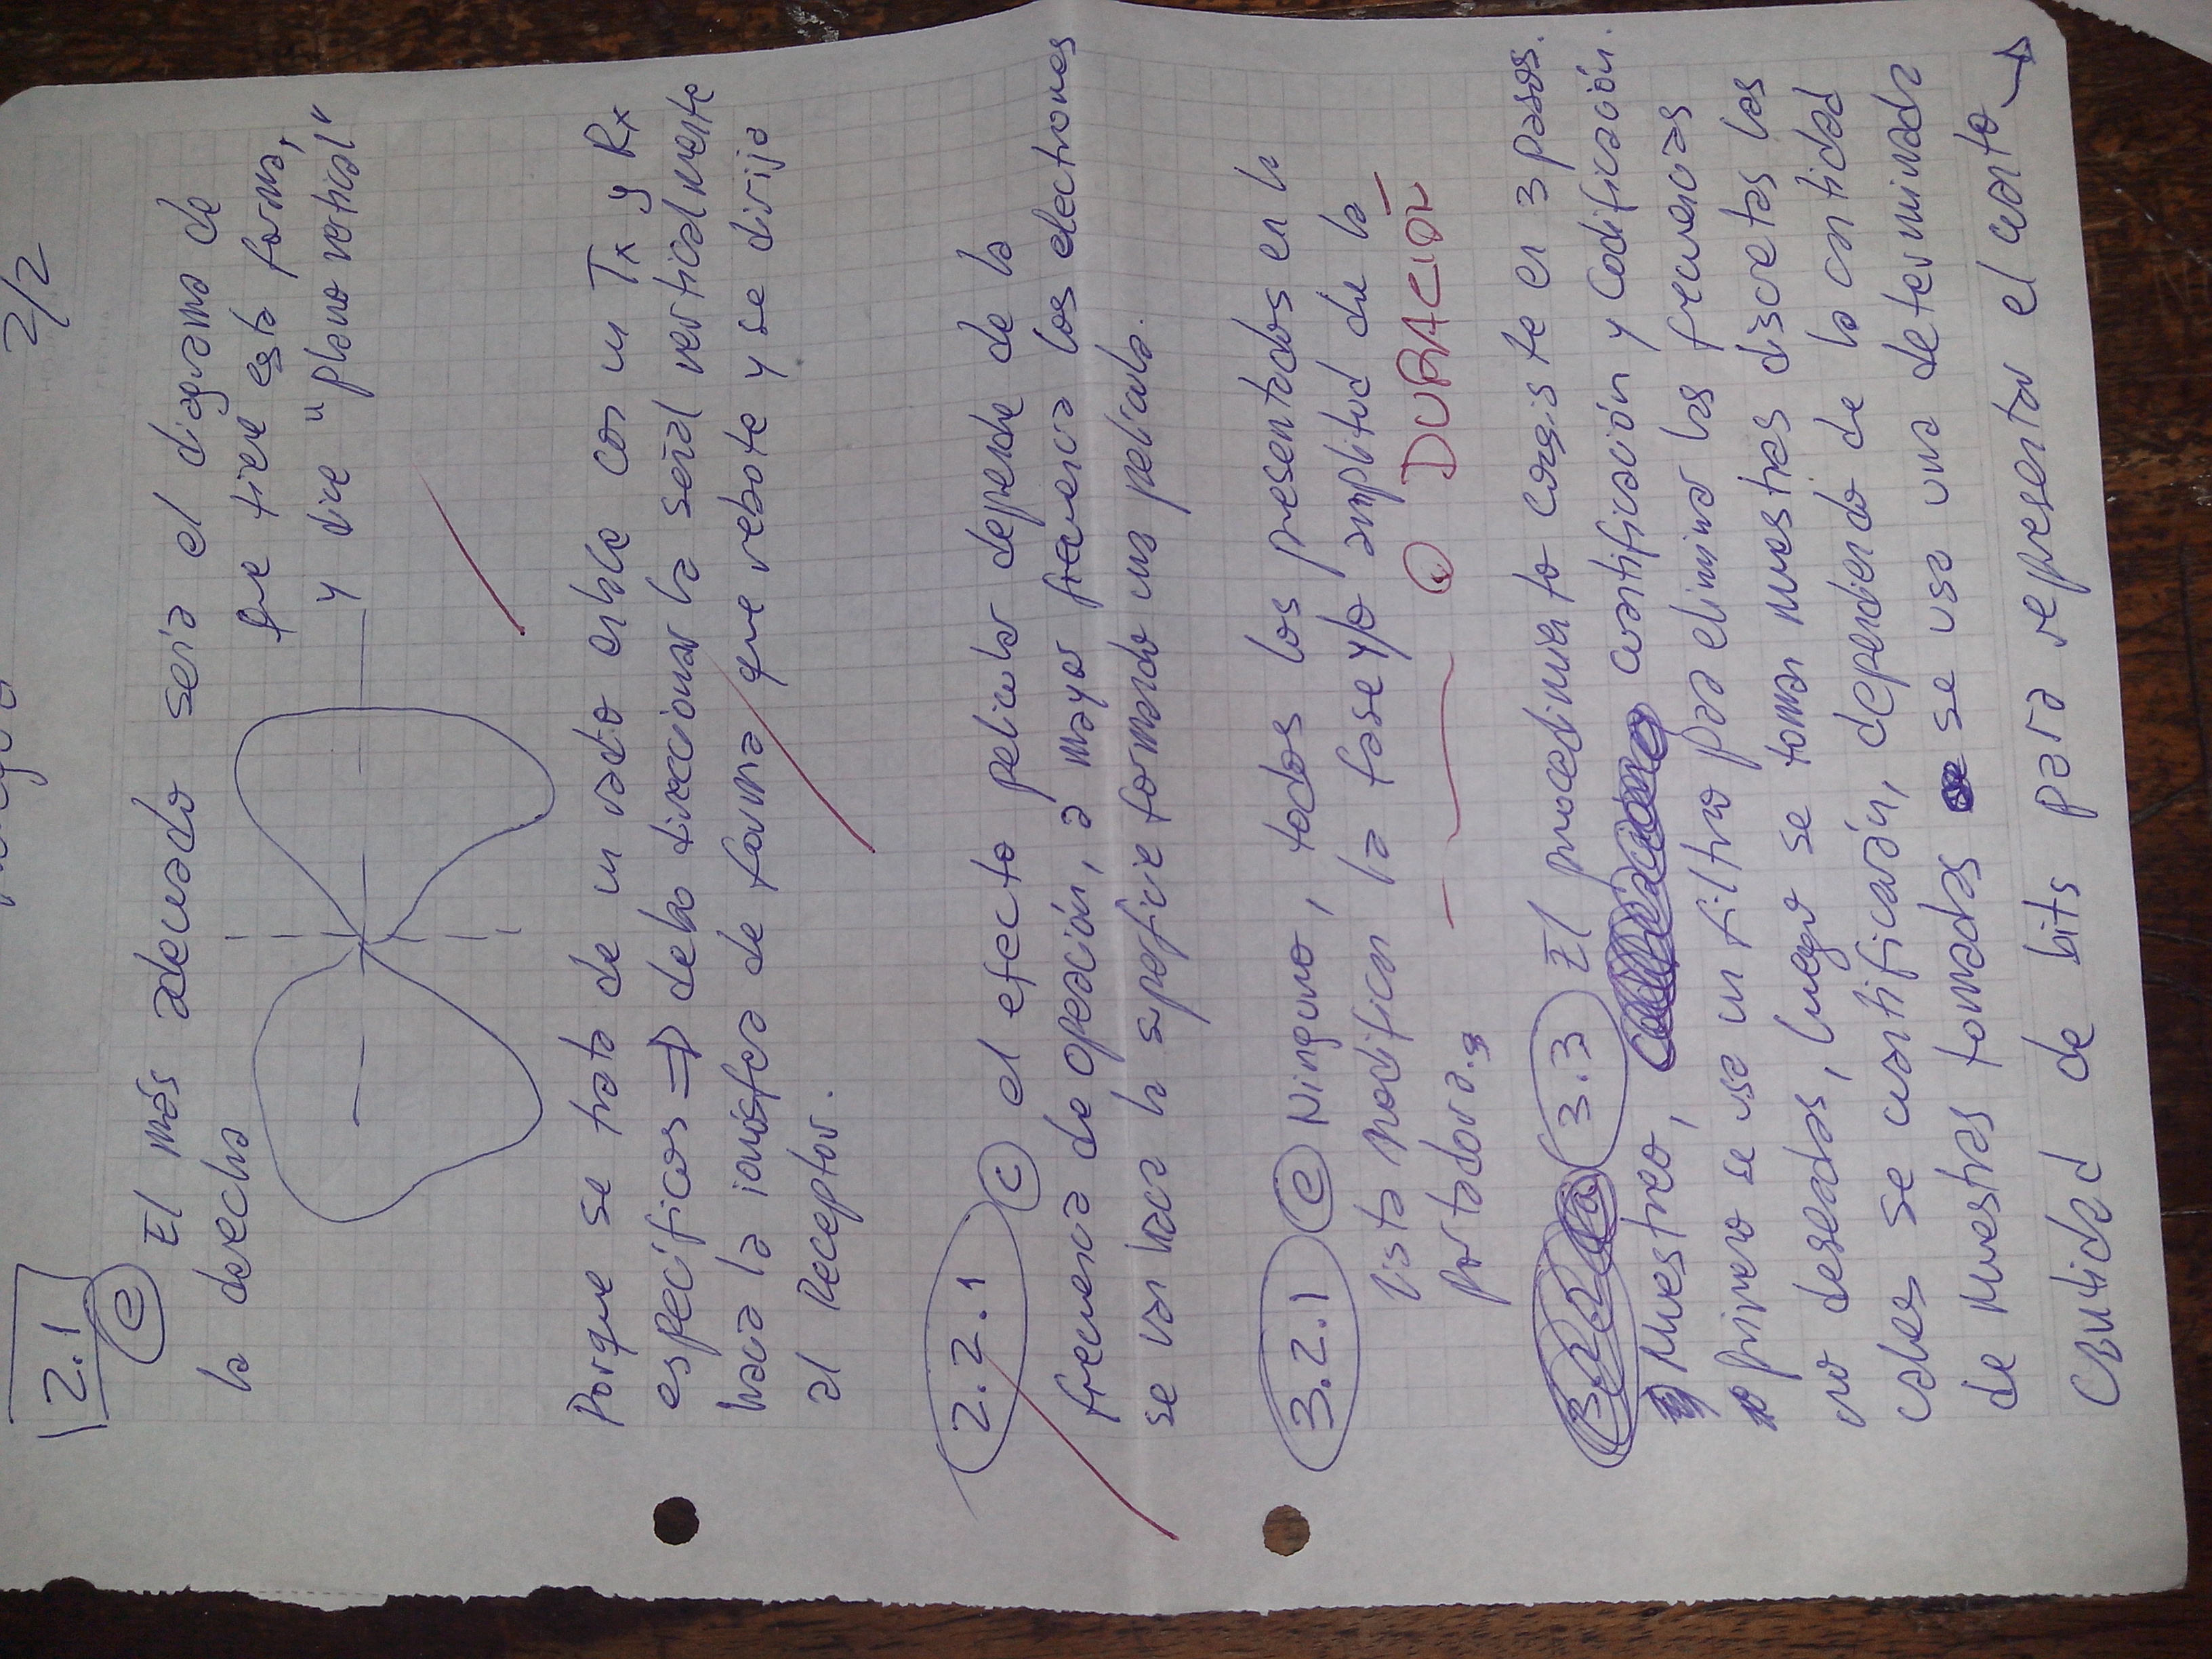 2/2
2.1
e El más adecuado sería el diagrama de
la derecha
que tiene esta forma,
y dice "plano vertical"
Porque se trata de un radio enlace con un Tx y Rx
específicos => debo direccionar la señal verticalmente
hacia la ionósfera de forma que rebote y se dirija
al Receptor.
2.2.1 c el efecto pelicular depende de la
frecuencia de operación, a mayor frecuencia los electrones
se van hacia la superficie formando una película.
3.2.1 e Ninguno, todos los presentados en la
lista modifican la fase y/o amplitud de la
O DURACIÓN
portadora.
3.3 El procedimiento consiste en 3 pasos.
Muestreo, cuantificación y Codificación.
primero se usa un filtro para eliminar las frecuencias
no deseadas, luego se toman muestras discretas las
cuales se cuantificarán, dependiendo de la cantidad
de muestras tomadas se usa una determinada
cantidad de bits para representar el cuanto →